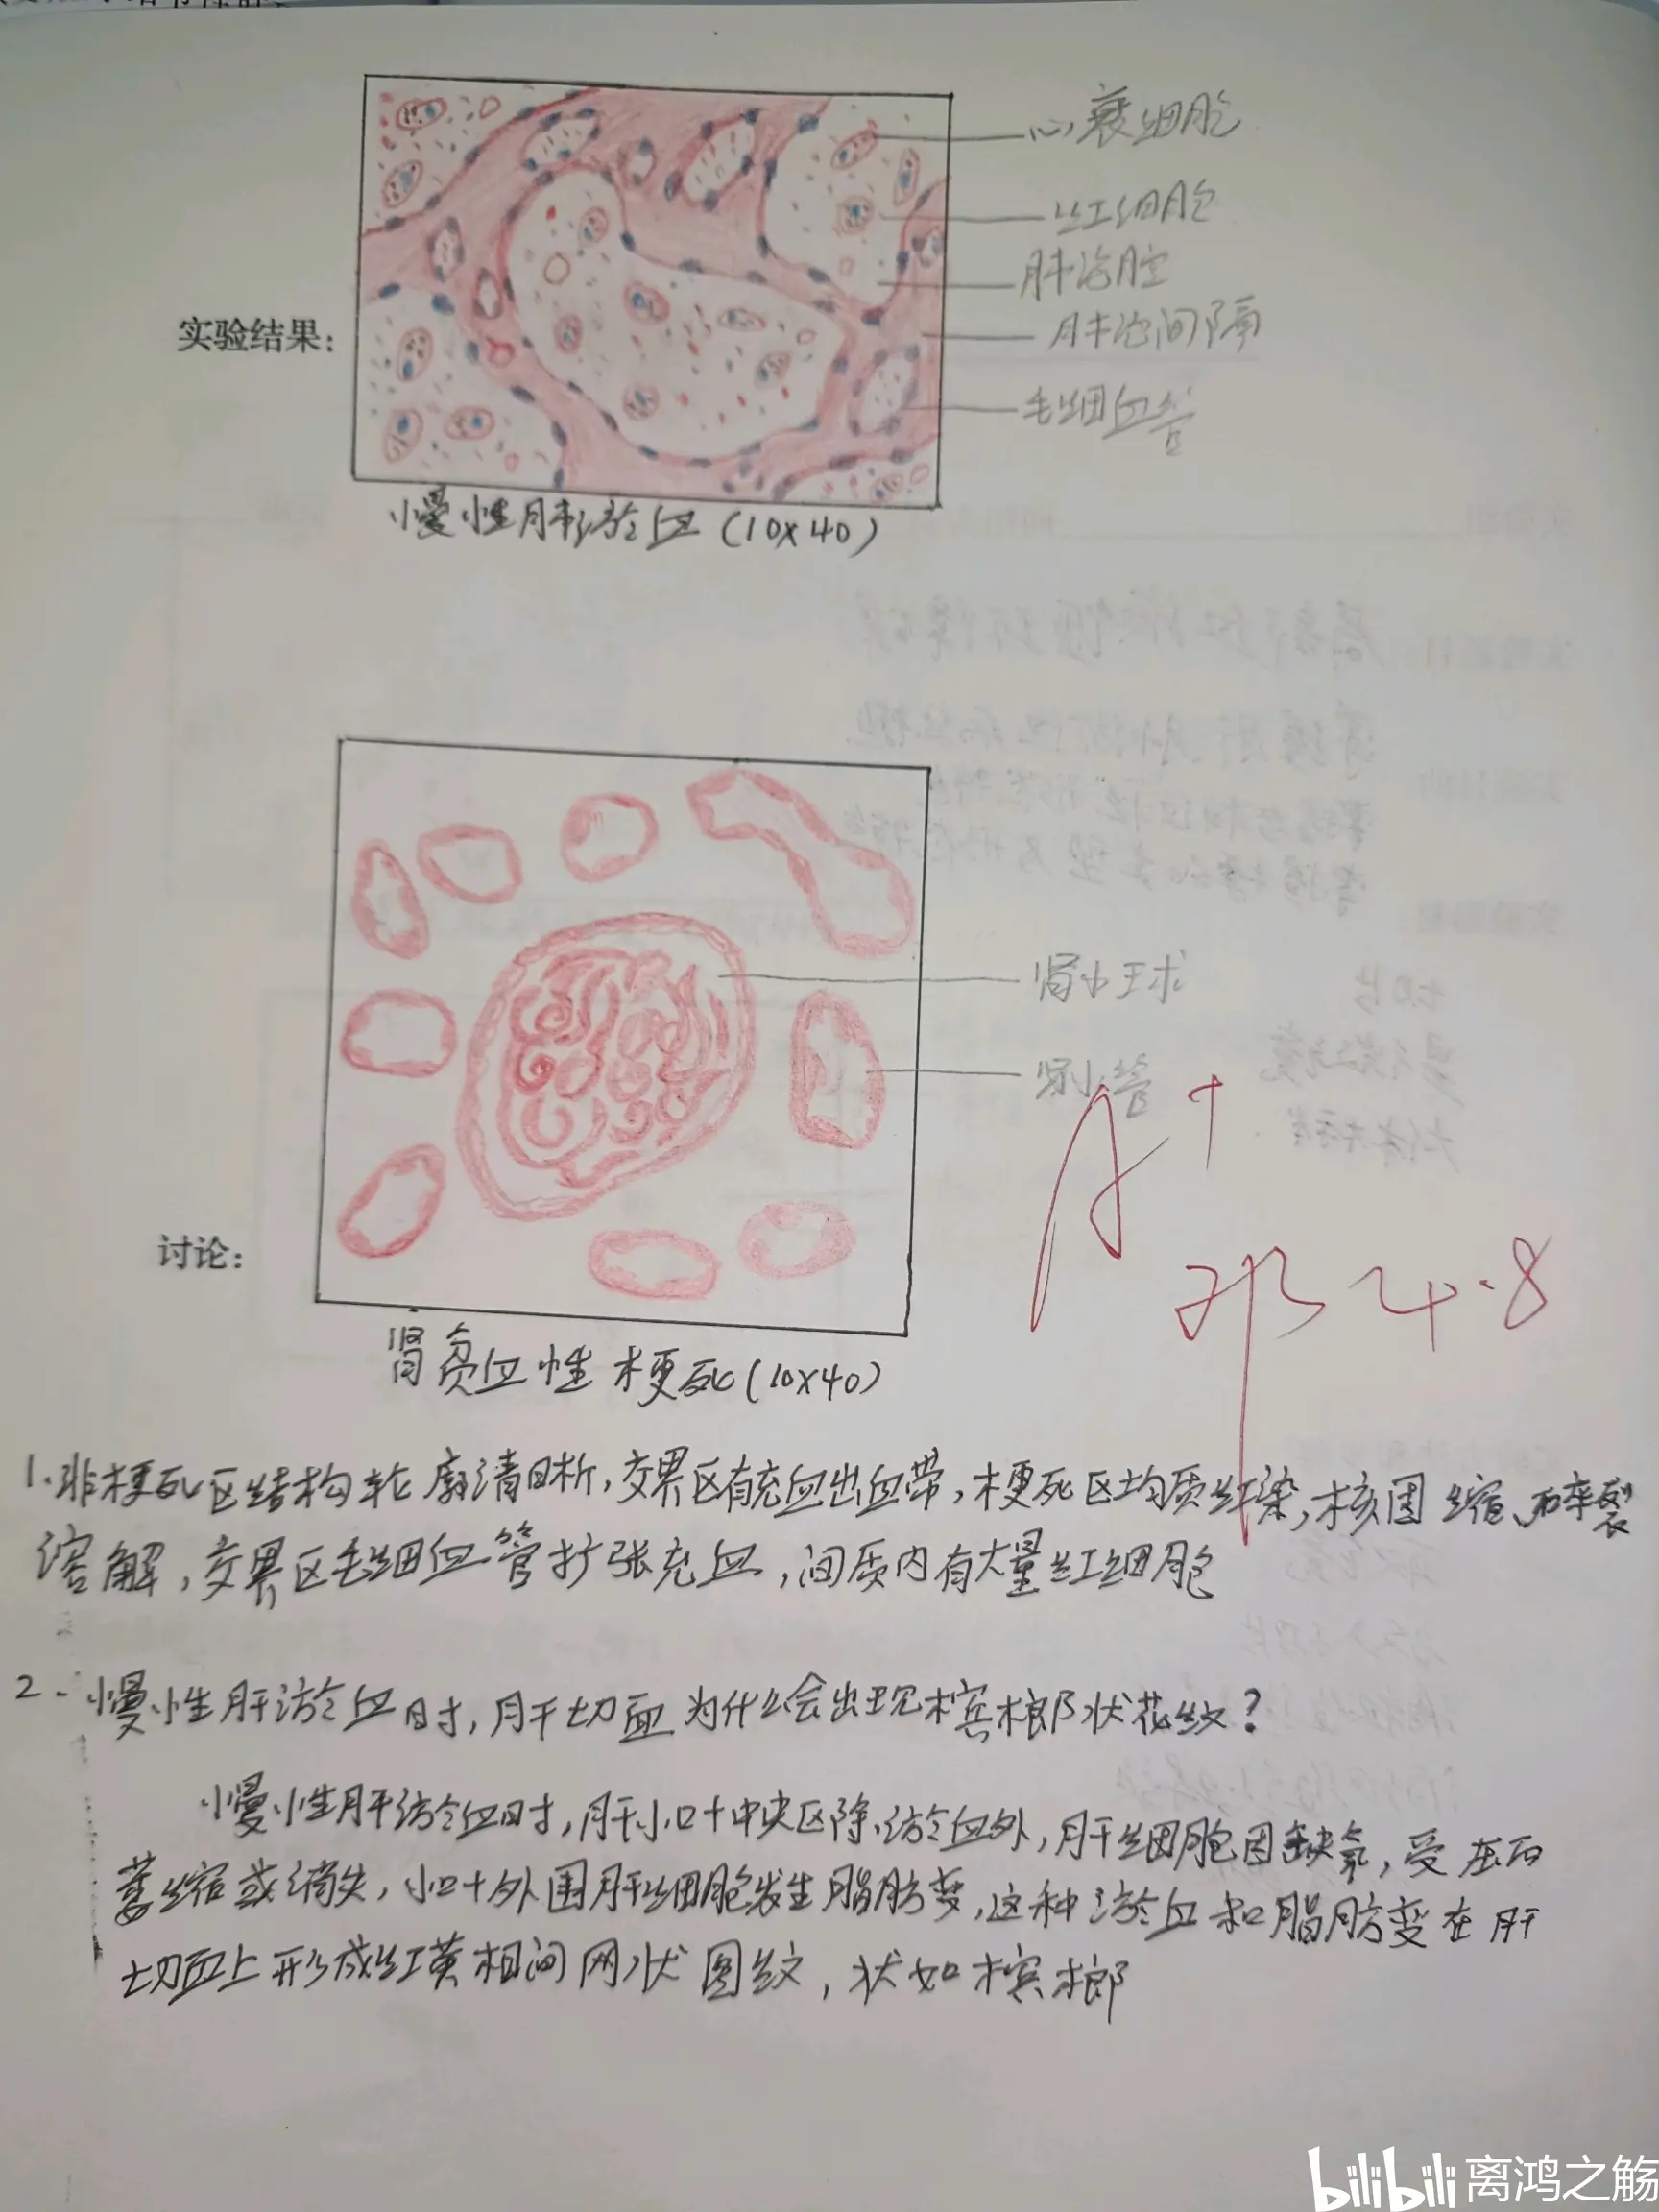 心衰细胞
红细胞
肺泡腔
肺泡间隔
实验结果：
毛细血管
慢性肺淤血（10×40）
肾小球
肾小管
A+
4.8
讨论：
肾贫血性梗死(10×40)
1.非梗死区结构轮廓清晰，交界区有充血出血带，梗死区均质红染，核固缩、碎裂
溶解，交界区毛细血管扩张充血，间质内有大量红细胞
2.慢性肝淤血时，肝切面为什么会出现槟榔状花纹？
慢性肝淤血时，肝小叶中央区除淤血外，肝细胞因缺氧，受压而
萎缩或消失，小叶外围肝细胞发生脂肪变，这种淤血和脂肪变在肝
切面上形成红黄相间网状图纹，状如槟榔
bilibili 离鸿之觞